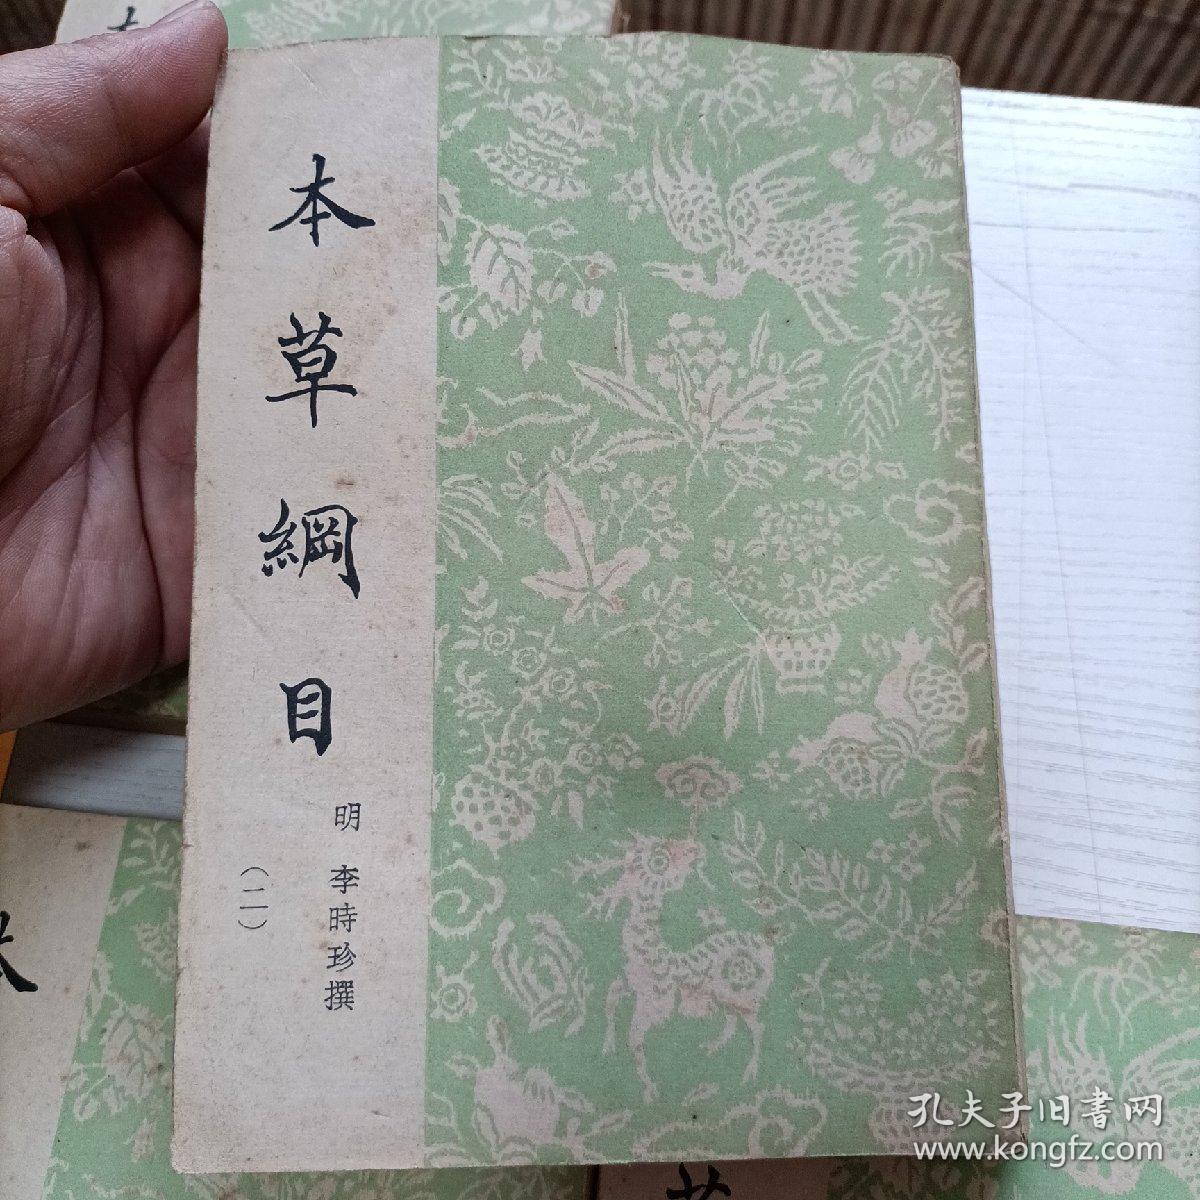 本草綱目
明 李時珍撰
（二）
本
本
草
孔夫子旧書网
www.kongfz.com